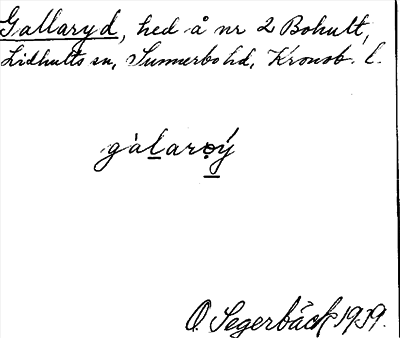 Gallaryd, hed å nr 2 Bohult,
Lidhults sn, Sunnerbo hd, Kronob. l.
gàlarọý
O. Segerbäck 1939.